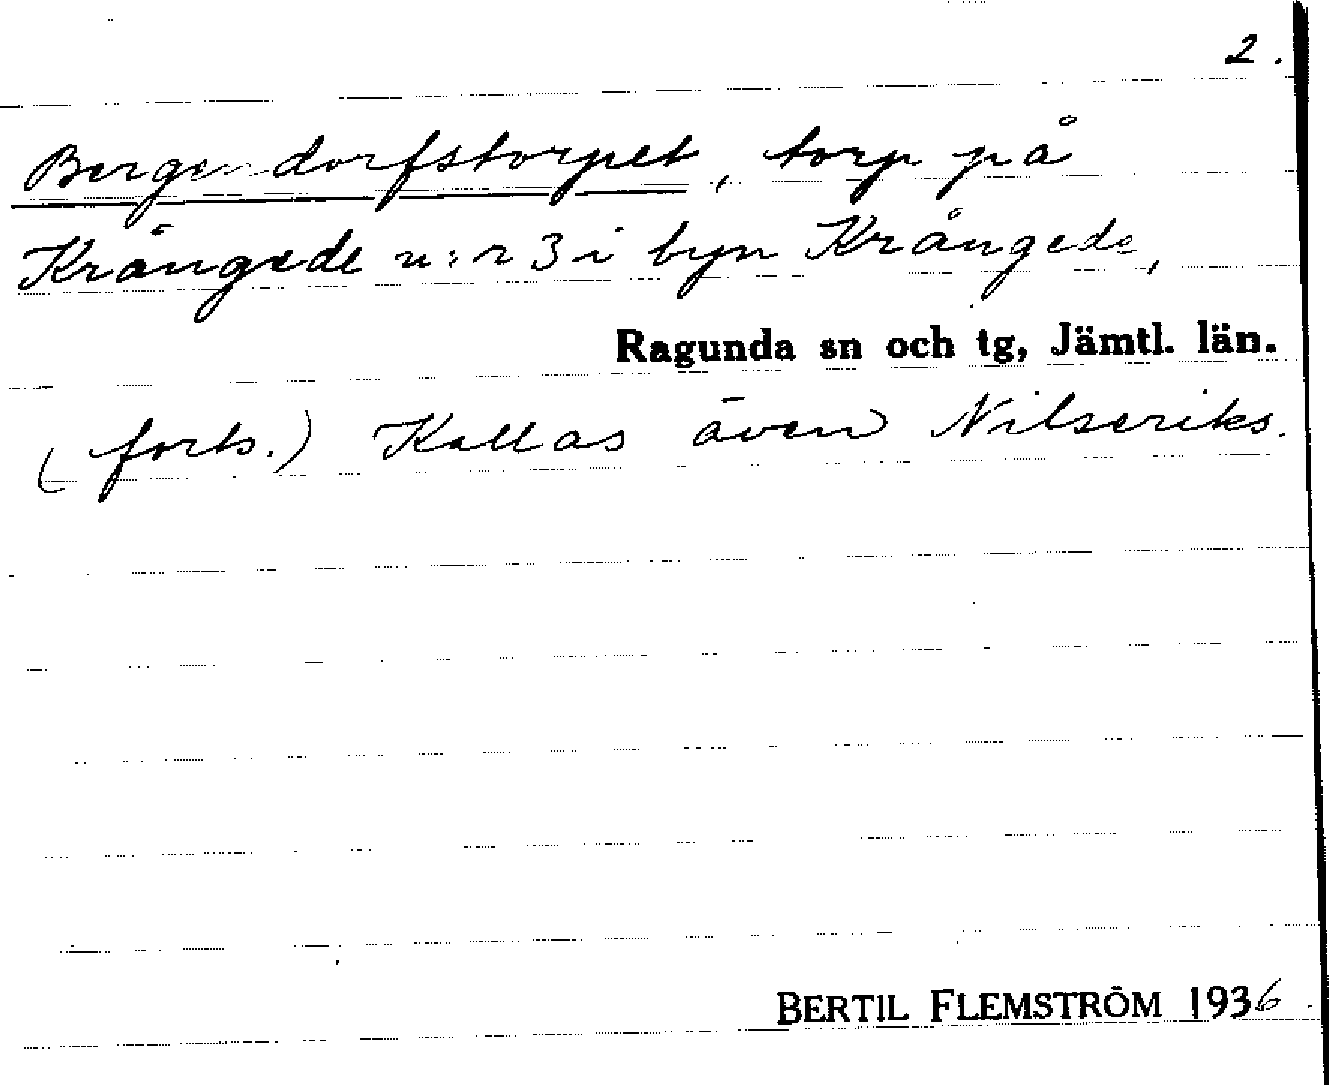 2.
Bergendorfstorpet, torp på
Krångede n:r 3 i byn Krångede,
Ragunda sn och tg, Jämtl. län.
(forts.) Kallas även Nilseriks.
BERTIL FLEMSTRÖM 1936